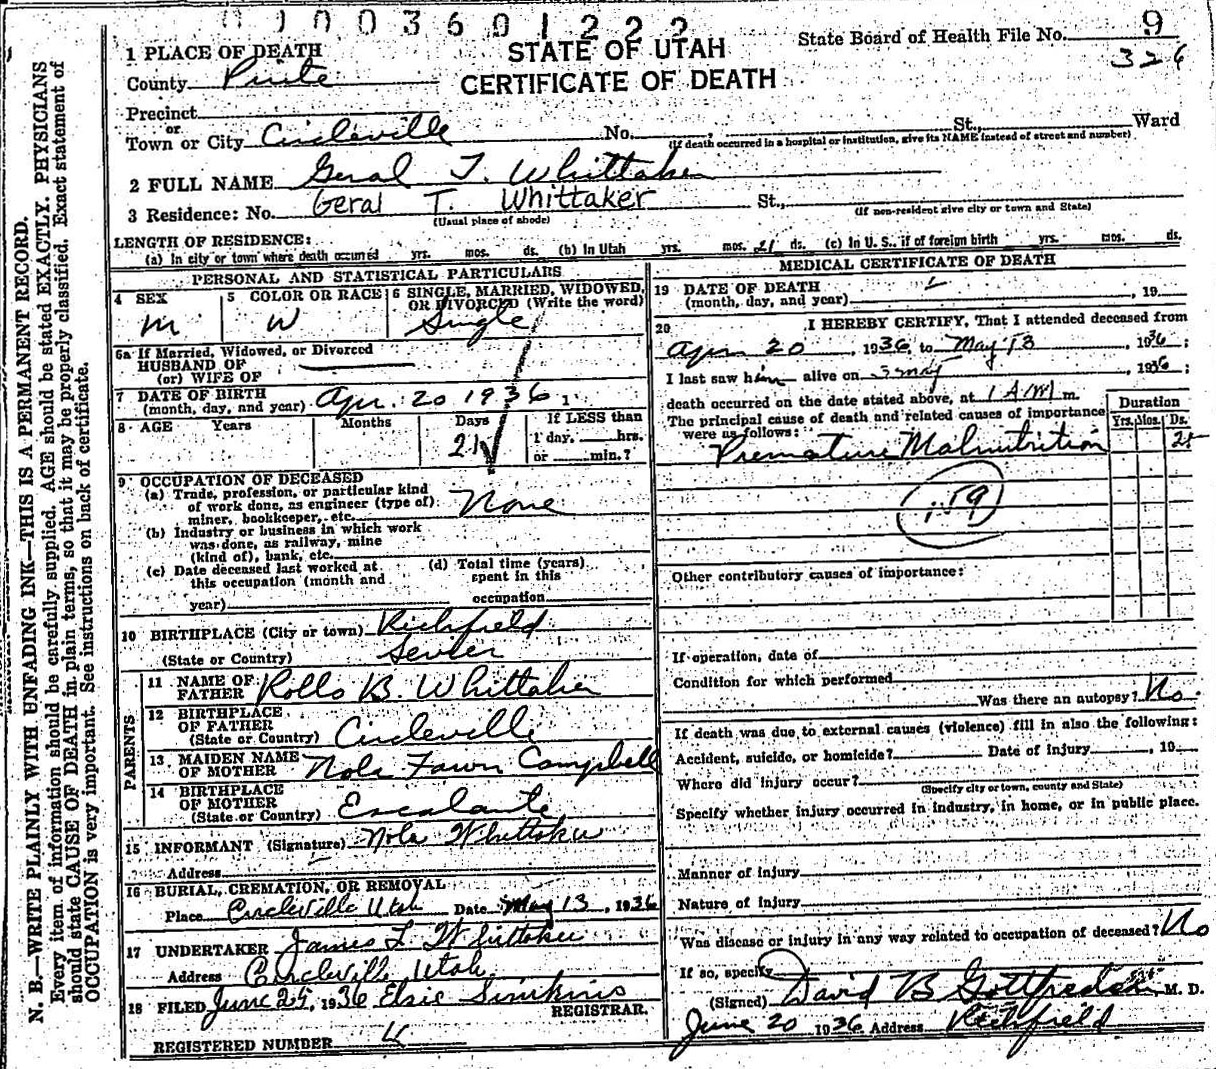 0 0 0 0 3 6 0 1 2 2 2
STATE OF UTAH
CERTIFICATE OF DEATH
State Board of Health File No. 9
326
1 PLACE OF DEATH
County Piute
Precinct
or
Town or City Circleville No. , St., Ward
(If death occurred in a hospital or institution, give its NAME instead of street and number)
2 FULL NAME Geral T. Whittaker
3 Residence: No. Geral T. Whittaker St.,
(Usual place of abode) (If non-resident give city or town and State)
LENGTH OF RESIDENCE:
(a) In city or town where death occured yrs. mos. ds. (b) In Utah yrs. mos. 21 ds. (c) In U. S., if of foreign birth yrs. mos. ds.
PERSONAL AND STATISTICAL PARTICULARS
4 SEX M
5 COLOR OR RACE W
6 SINGLE, MARRIED, WIDOWED, OR DIVORCED (Write the word) Single
6a If Married, Widowed, or Divorced
HUSBAND OF
(or) WIFE OF
7 DATE OF BIRTH
(month, day, and year) Apr. 20 1936
8 AGE Years Months Days 21
If LESS than
1 day, hrs.
or min.?
9 OCCUPATION OF DECEASED
(a) Trade, profession, or particular kind
of work done, as engineer (type of)
miner, bookkeeper, etc. None
(b) Industry or business in which work
was done, as railway, mine
(kind of), bank, etc.
(c) Date deceased last worked at
this occupation (month and
year)
(d) Total time (years)
spent in this
occupation
10 BIRTHPLACE (City or town) Richfield
(State or Country) Sevier
PARENTS
11 NAME OF
FATHER Rollo B. Whittaker
12 BIRTHPLACE
OF FATHER
(State or Country) Circleville
13 MAIDEN NAME
OF MOTHER Nola Fawn Campbell
14 BIRTHPLACE
OF MOTHER
(State or Country) Escalante
15 INFORMANT (Signature) Nola Whittaker
Address
16 BURIAL, CREMATION, OR REMOVAL
Place Circleville Utah Date May 13, 1936
17 UNDERTAKER James L Whittaker
Address Circleville Utah
18 FILED June 25, 1936 Elsie Simkins
REGISTRAR.
REGISTERED NUMBER
MEDICAL CERTIFICATE OF DEATH
19 DATE OF DEATH
(month, day, and year) , 19
20 I HEREBY CERTIFY, That I attended deceased from
Apr 20, 1936, to May 13, 1936;
I last saw him alive on 3 may, 1936;
death occurred on the date stated above, at 1 AM m.
The principal cause of death and related causes of importance
were as follows:
Duration
Yrs. Mos. Ds.
Premature Malnutrition
159
Other contributory causes of importance:
If operation, date of
Condition for which performed
Was there an autopsy? No
If death was due to external causes (violence) fill in also the following:
Accident, suicide, or homicide? Date of injury , 19
Where did injury occur?
(Specify city or town, county and State)
Specify whether injury occurred in industry, in home, or in public place.
Manner of injury
Nature of injury
Was disease or injury in any way related to occupation of deceased? No
If so, specify
(Signed) David B Gottfredson M. D.
June 20 1936 Address Richfield
N. B.—WRITE PLAINLY WITH UNFADING INK—THIS IS A PERMANENT RECORD.
Every item of information should be carefully supplied. AGE should be stated EXACTLY. PHYSICIANS
should state CAUSE OF DEATH in plain terms, so that it may be properly classified. Exact statement of
OCCUPATION is very important. See instructions on back of certificate.